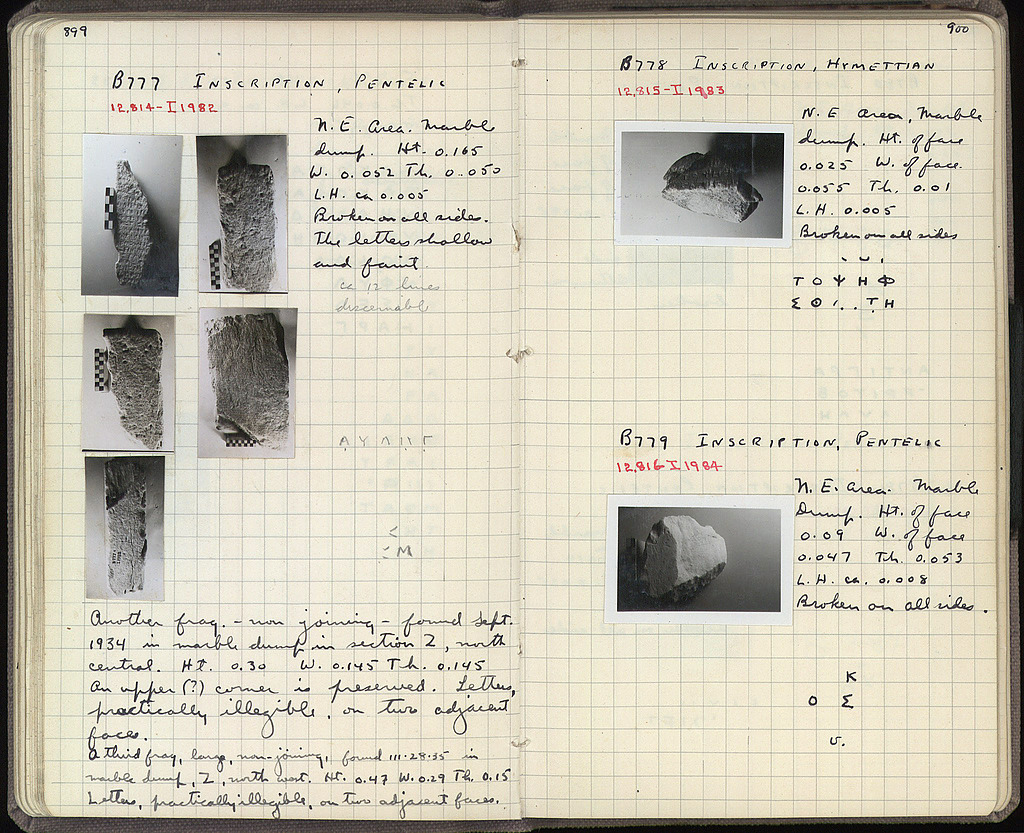 899
B777 INSCRIPTION, PENTELIC
12,814-I 1982
N. E. Area. Marble
dump. Ht. 0.165
W. 0.052 Th. 0.050
L.H. ca 0.005
Broken on all sides.
The letters shallow
and faint
ca 12 lines
discernable
Another frag. - non joining - found Sept.
1934 in marble dump in section Z, north
central. Ht. 0.30 W. 0.145 Th. 0.145
An upper (?) corner is preserved. Letters,
practically illegible, on two adjacent
faces.
A third frag, large, non-joining, found III-28-35 in
marble dump, Z, north west. Ht. 0.47 W. 0.29 Th. 0.15
Letters, practically illegible, on two adjacent faces.
900
B778 INSCRIPTION, HYMETTIAN
12,815-I 1983
N. E area, Marble
dump. Ht. of face
0.025 W. of face.
0.055 Th. 0.01
L.H. 0.005
Broken on all sides
Τ Ο Ψ Η Φ
Σ Θ Ι . . Τ Η
B779 INSCRIPTION, PENTELIC
12,816-I 1984
N. E. area. Marble
Dump. Ht. of face
0.09 W. of face
0.047 Th. 0.053
L.H. ca. 0.008
Broken on all sides.
Κ
Ο Σ
υ.